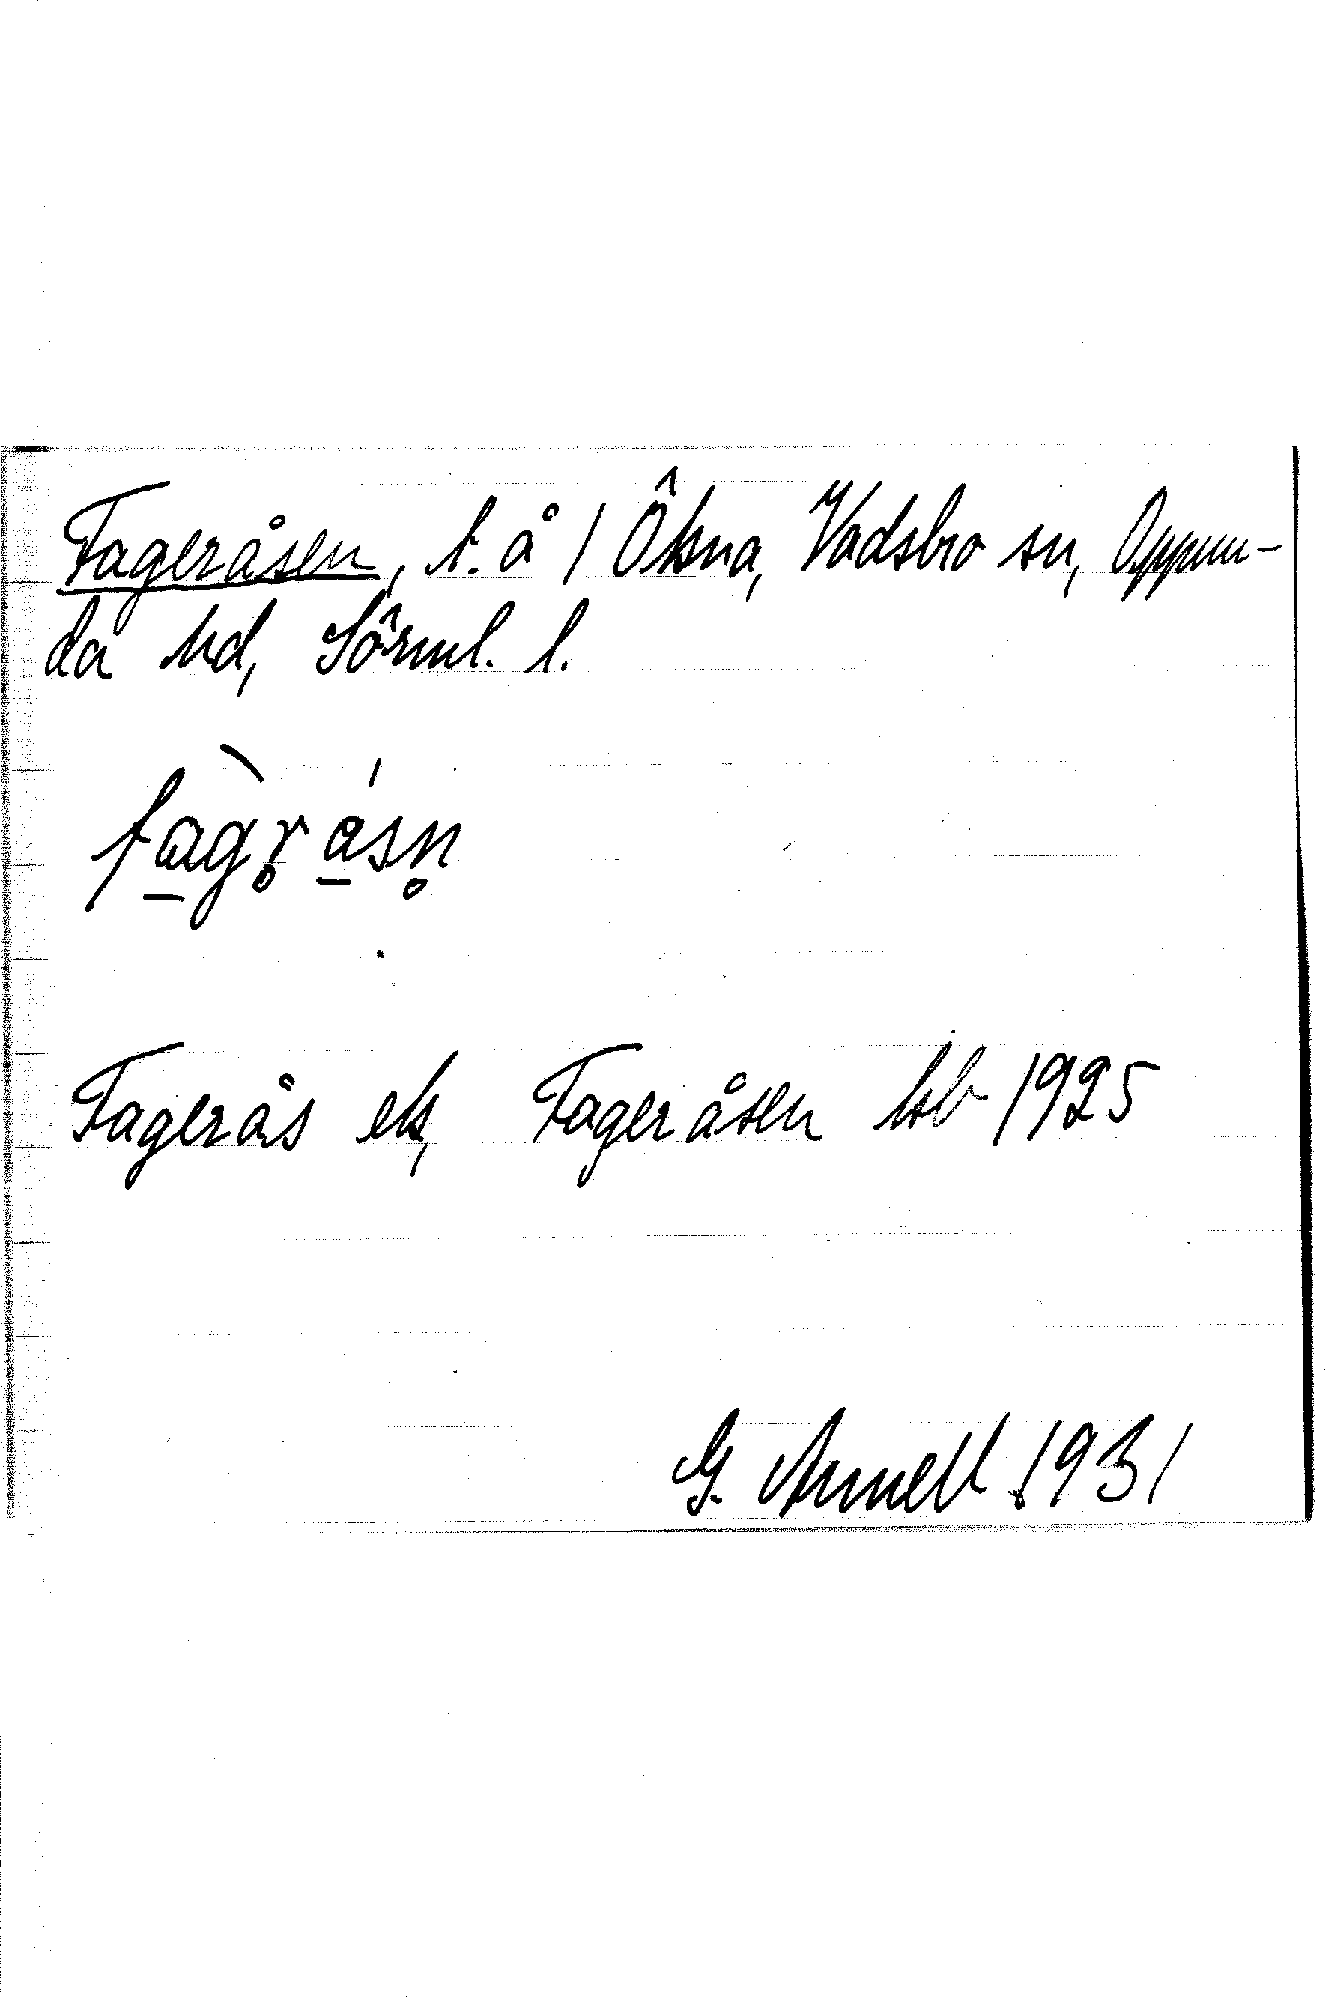 Fageråsen, t. å / Ôksna, Vadsbro sn, Oppun-
da hd, Sôrml. l.
fàgr̥ásn̥
Fagerås ek, Fageråsen hsb 1925
G. Annell 1931